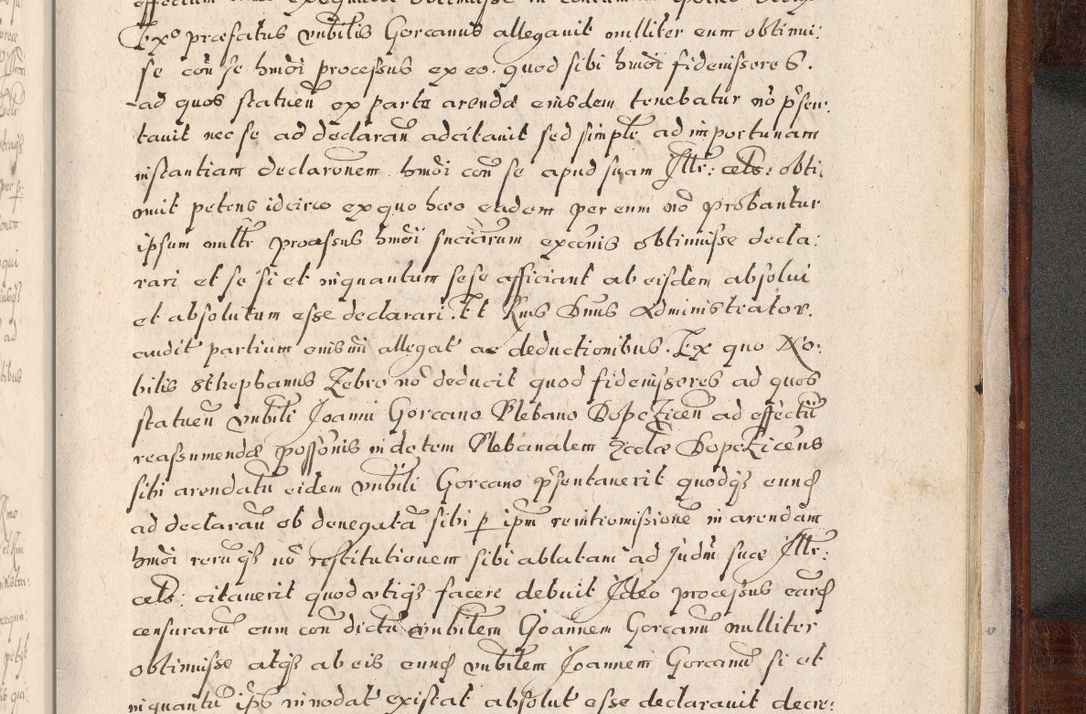 Exo præfatus vnbilis Gorcanus allegauit nulliter eum obtinui:
se con se hmõi processus ex eo. quod sibi hmõi fideiussores.
ad quos statueñ ex parte arendæ eiusdem tenebatur nõ p̃sen:
tauit nec se ad declarañ adcitauit sed simpłr ad importunam
instantiam declaronem hmõi coñ se apud suam Illr: cels: obti:
nuit petens idcirco ex quo hæc eadem per eum nõ probantur
ipsum nullr processus hmõi exconis obtinuisse decla:
rari et se si et inquantum sese afficiant ab eisdem absolui
et absolutum esse declarari. Et Rms Dnus Administrator.
audit partium allegat ac deductionibus. Ex quo No:
bilis Stephanus Zebro nõ deducit quod fideiussores ad quos
statueñ vnbili Joanni Gorcano Plebano Dopczicen ad effectũ
reassumendæ possõnis in dotem Plebanalem Ecclæ Dopczicens
sibi arendatũ eidem vnbili Gorcano p̃sentauerit quodqȝ eund
ad declarañ ob denegatã sibi p ipm reintromissione in arendam
hmõi rerũqȝ nõ restitutionem sibi ablatam ad Judm suæ Illr:
cels: citauerit quod vtiqȝ facere debuit Ideo processus eard
censurarũ cum con dictũ vnbilem Joannem Gorcanũ nulliter
obtinuisse atqȝ ab eis eund vnbilem Joannem Gorcanũ si et
inquantũ ip̃s innodat existat absolut esse declarauit decre: